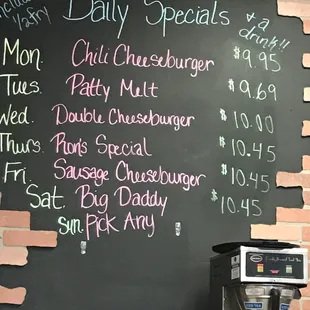 Daily Specials
1/2 fry
& a
drink!!
Mon. Chili Cheeseburger $9.95
Tues. Patty Melt $9.69
Wed. Double Cheeseburger $10.00
Thurs. Ron's Special $10.45
Fri. Sausage Cheeseburger $10.45
Sat. Big Daddy $10.45
Sun. Pick Any